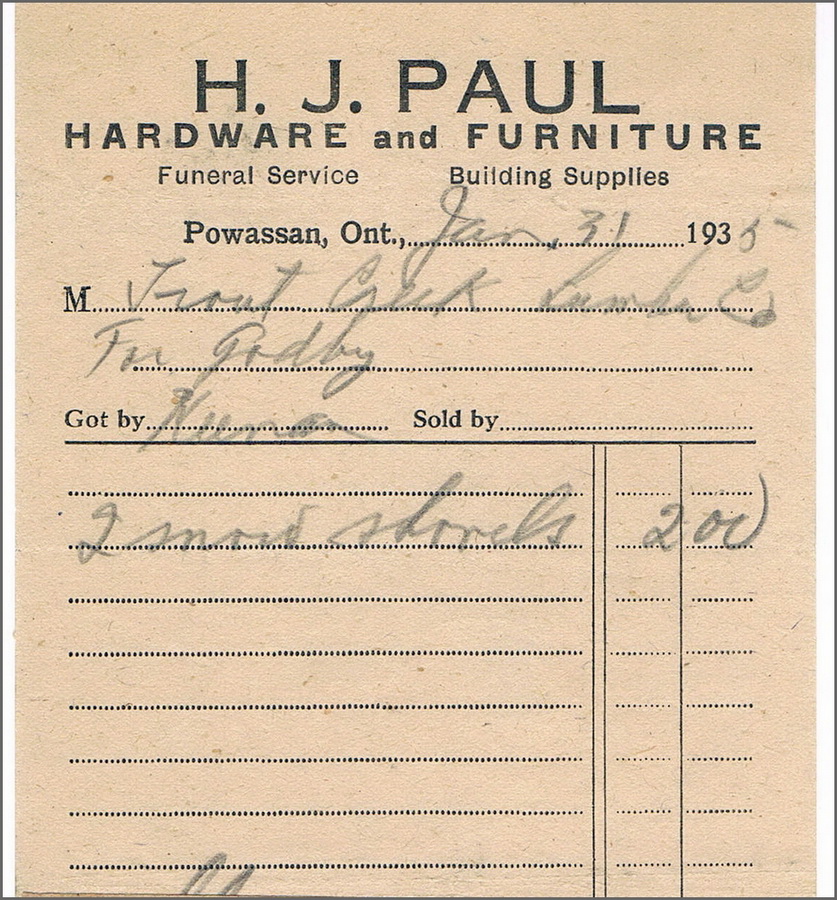 H. J. PAUL
HARDWARE and FURNITURE
Funeral Service Building Supplies
Powassan, Ont., Jan. 31 1935
M Trout Creek Lumber Co
For Godby
Got by Sold by
2 snow shovels 2 00